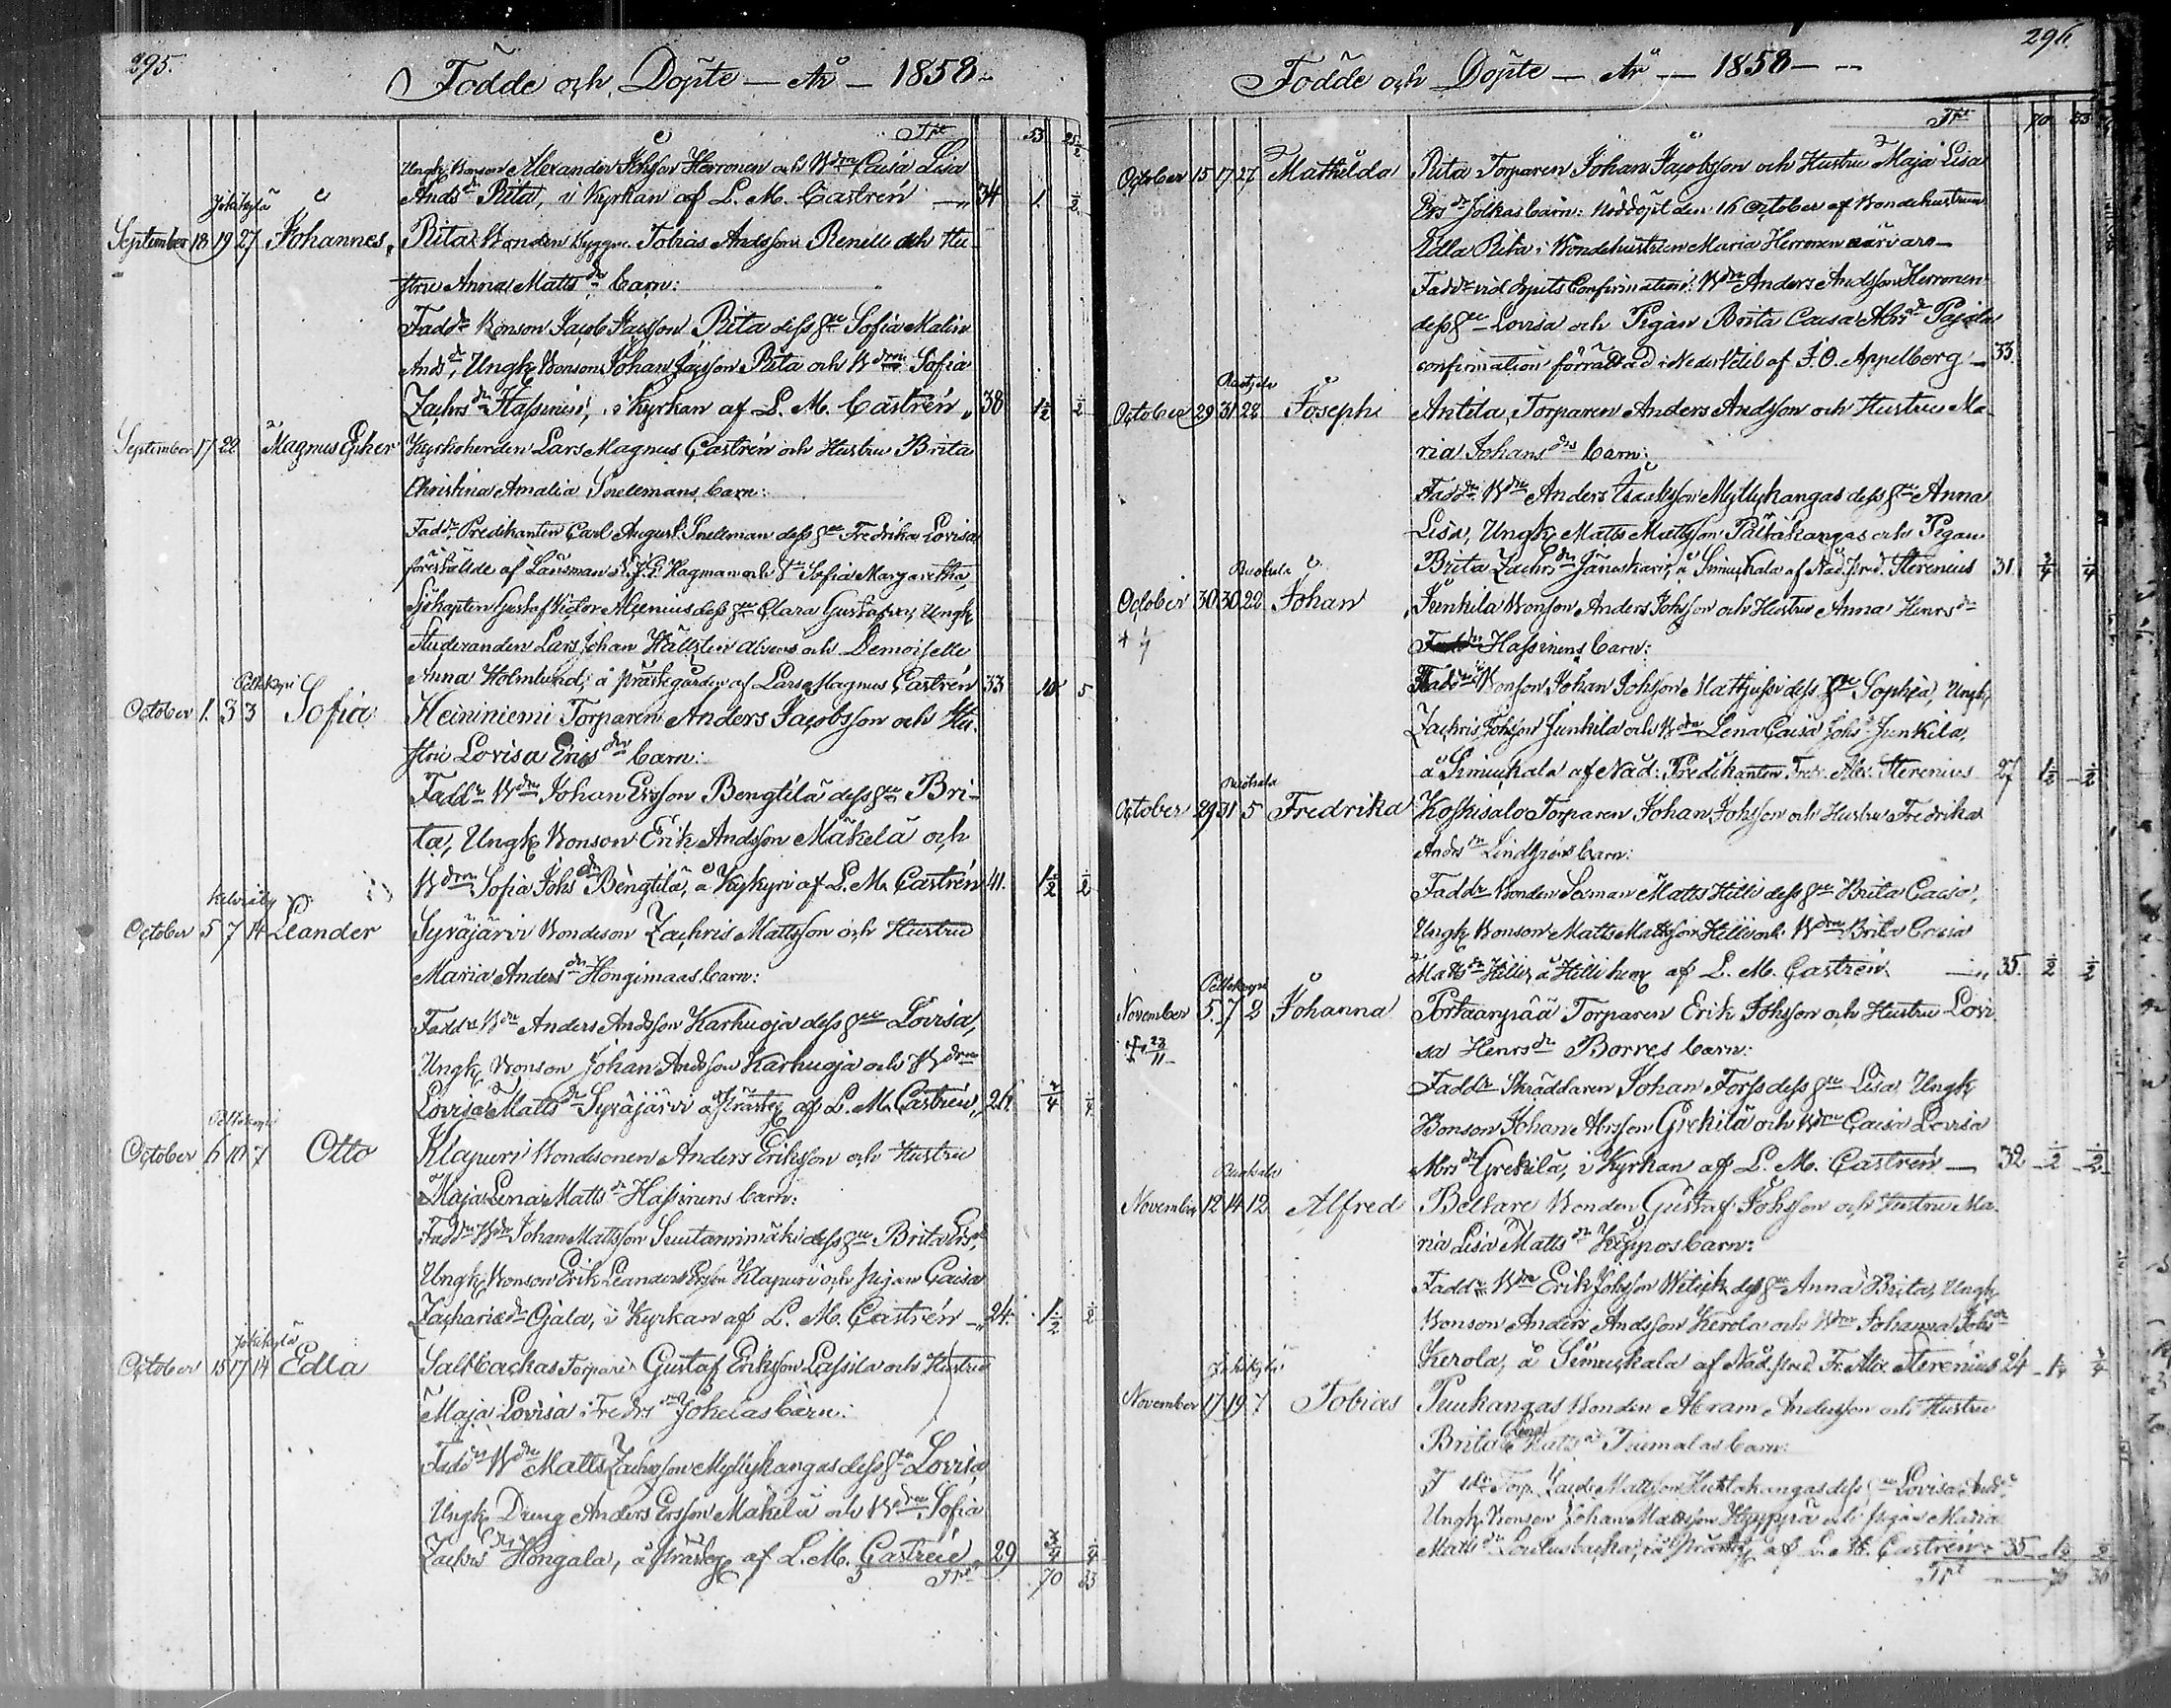 295.
Födde och Döpte — År — 1858
Trt 53 25 1/2
Ungk. Bonson Alexander Johsson Herronen och Bdrn Caisa Lisa
Jokikylä
Andsdr Rita, i Kyrkan af L. M. Castrén — 34 1. 1/2
September 18 19 27 Johannes, Rita Bonden Tobias Andsson Renell och Hu-
stru Anna Mattsdr barn:
Faddr Bonson Jacob Jacsson Rita dess hu Sofia Malin
Andsd, Ungk. Bonson Johan Jacsson Rita och Bdrn Sofia
Zachrsdr Hassinen, i Kyrkan af L. M. Castrén 38 1/2 1/2
September 17 22 Magnus Kyrkoherden Lars Magnus Castrén och Hustru Brita
Christina Amalia Snellmans barn:
Faddr Predikanten Carl August Snellman dess hu Fredrika Lovisa
föreställde af Länsman Hagman och hu Sofia Margaretha,
Sjökapten Gustaf Victor dess hu Clara Gustafva, Ungk.
Studeranden Lars Johan och Demoiselle
Peltokyri
Anna Holmlund, å prästegården af Lars Magnus Castrén 33 10 5
October 1. 3 3 Sofia Heininiemi Torparen Anders Jacobsson och Hu-
stru Lovisa Ericsdr barn:
Faddr Bdn Johan Ersson Bengtilä dess hu Bri-
ta, Ungk. Bonson Erik Andsson Mäkelä och
Kelviåby
Bdrn Sofia Johsdr Bengtilä, å Kykyri af L. M. Castrén 41. 1/2 1/2
October 5 7 14 Leander Syräjärvi Bondeson Zachris Mattsson och Hustru
Maria Andersdr Hongimaas barn:
Faddr Bdn Anders Andsson Karhuoja dess hu Lovisa,
Ungk. Bonson Johan Andsson Karhuoja och Bdrn
Peltokyri
Lovisa Mattsdr Syräjärvi å prästeg. af L. M. Castrén, 26 1/4
October 6 10 7 Otto Klapuri Bondsonen Anders Eriksson och Hustru
Maja Lena Mattsdr Hassinens barn:
Faddr Bdn Johan Mattsson dess hu Brita Ersdr,
Ungk. Bonson Erik Leander Ersson Klapuri och pigan Caisa
Jokikylä
Zachariædr Ojala, i Kyrkan af L. M. Castrén — 24. 1/2 1/2
October 15 17 14 Edla Saltbackas Torparen Gustaf Eriksson Lassila och Hustru
Maja Lovisa Fredrsdr Jokelas barn:
Faddr Bdn Matts Zachrsson Myllykangas dess hu Lovisa
Ungk. Dreng Anders Ersson Mäkelä och Bdrn Sofia
Zachrsdr Hongala, å prästeg. af L. M. Castrén 29 3/4 1/4
Trt 70 33
296.
Födde och Döpte — År — 1858 —
Trt 70 33
October 15 17 27 Mathilda Rita Torparen Johan Jacobsson och Hustru Maja Lisa
Ersdr Jolkas barn: Nöddöpt den 16 October af Bondehustrun
Edla Rita i Bondehustrun Maria Herronen närvaro —
Faddr vid dopets Confirmation: Bdn Anders Andsson Herronen
dess hu Lovisa och Pigan Brita Caisa Abrsdr Pajala
confirmation förrättad i Neder Vetil af J. O. Appelberg — 33.
October 29 31 28 Joseph Antila, Torparen Anders Andsson och Hustru Ma-
ria Johansdrs barn:
Faddr Bdn Anders Isaaksson Myllykangas dess hu Anna
Lisa, Ungk. Matts Mattsson Pältäkangas och Pigan
Ruohala
Brita Zachrsdr å Simukala af Nåd. pred. Sterenius 31. 3/4 1/4
October 30 30 22 Johan Junkila Bonson Anders Johsson och Hustru Anna Henrsdr
Hassinens barn:
Faddr Bonson Johan Johsson Mattjussi dess hu Sophia, Ungk.
Zachris Johsson Junkila och Bdrn Lena Caisa Johsd Junkila,
Ruohala
å Simukala af Nåd: Predikanten Fredr. Alex. Sterenius 27 1/2 1/2
October 29 31 5 Fredrika Koskisalo Torparen Johan Johsson och Hustru Fredrika
Andrsdr Lindgrens barn:
Faddr Bonden Sexman Matts Hilli dess hu Brita Caisa,
Ungk. Bonson Matts Mattsson Hilli och Bdrn Brita Caisa
Peltokyri
Mattsdr Hilli, å Hilli hem. af L. M. Castrén — 35. 1/2 1/2
November 5. 7 2 Johanna Portaanpää Torparen Erik Johsson och Hustru Lovi-
+ 23/11 sa Henrsdr Borres barn:
Faddr Skräddaren Johan Forss dess hu Lisa, Ungk.
Bonson Johan Abrsson Grekilä och Bdrn Caisa Lovisa
Ruohala
Abrsdr Grekilä, i Kyrkan af L. M. Castrén — 32 1/2 1/2
November 12 14 12 Alfred Beltare Bonden Gustaf Johsson och Hustru Ma-
ria Lisa Mattsdr Kippos barn:
Faddr Bdn Erik Johsson Witick dess hu Anna Brita, Ungk.
Bonson Anders Andsson Kerola och Bdrn Johanna Johsdr
Jokikylä
Kerola, å Simukala af Nåd. pred. Fr. Alex. Sterenius 24
November 17 19 7 Tobias Puukangas Bonden Abram Andersson och Hustru
Brita Lena Mattsdr Tiemalas barn:
Torp. Mattsson dess hu Lovisa Andsdr
Ungk. Bonson Johan Mattsson Hyyppä och pigan Maria
Mattsdr å prästeg. af L. M. Castrén 35 1/2
Trt